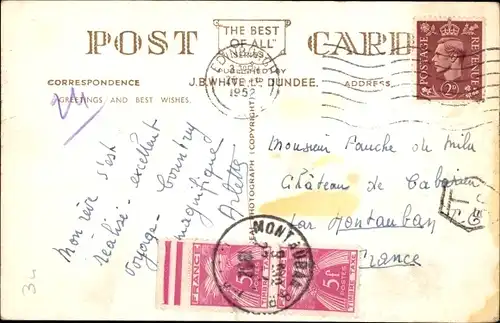 POST CARD
"THE BEST
OF ALL"
CORRESPONDENCE
J.B. WHITE LTD DUNDEE.
ADDRESS
GREETINGS AND BEST WISHES.
1952
POSTAGE REVENUE
2D
PHOTOGRAPH (COPYRIGHT)
Mon rêve s'est
réalisé - excellent
voyage - Country
magnifique
Arlette
Monsieur Fouche du Milu
Château de
par Montauban
France
T
MONTAUBAN
FRANCE
5F
POSTES
TIMBRE TAXE
5F
POSTES
TIMBRE TAXE
34